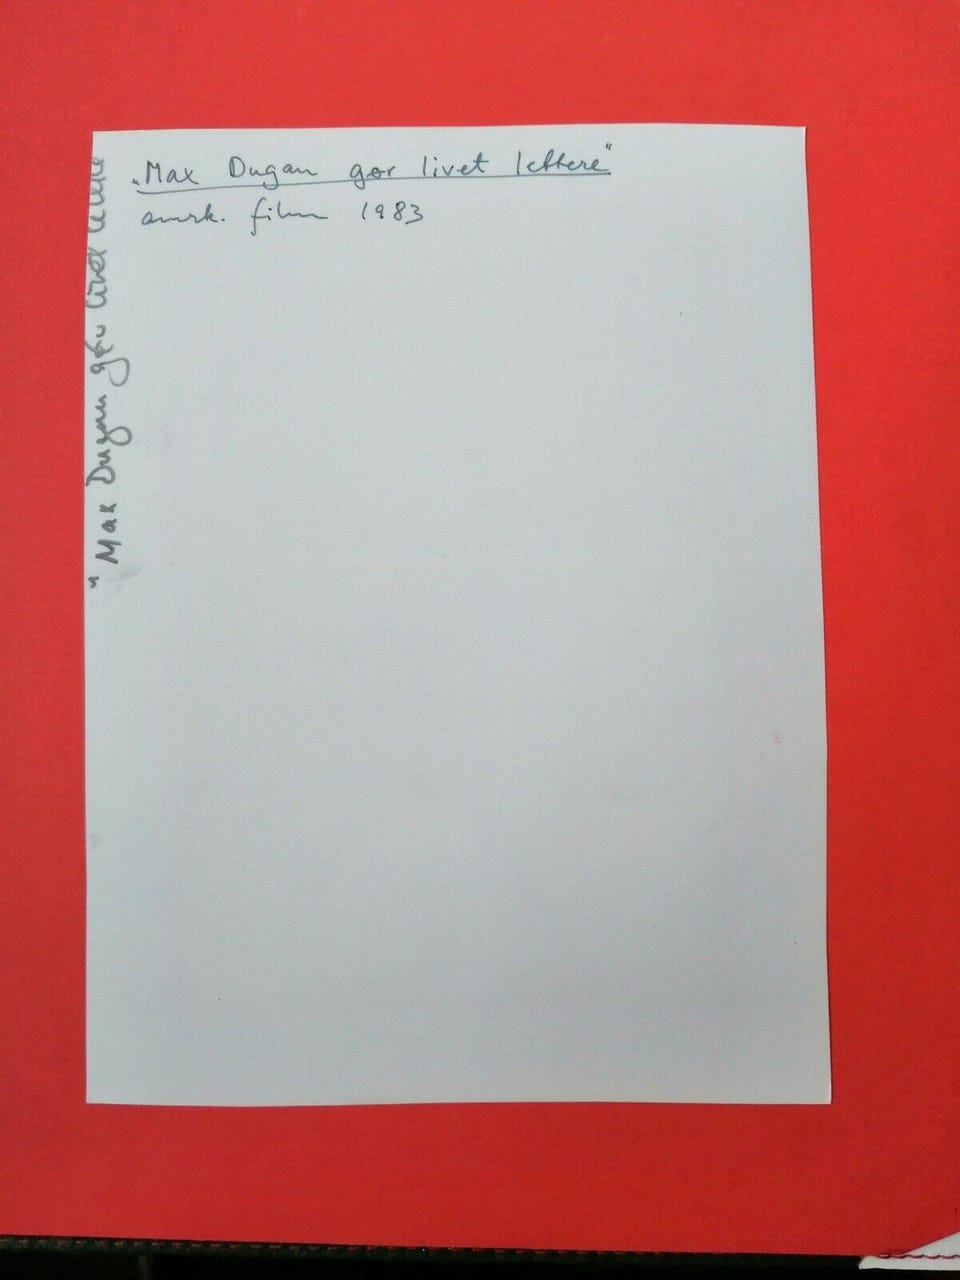 „Max Dugan gør livet lettere"
amrk. film 1983
"Max Dugan gør livet lettere